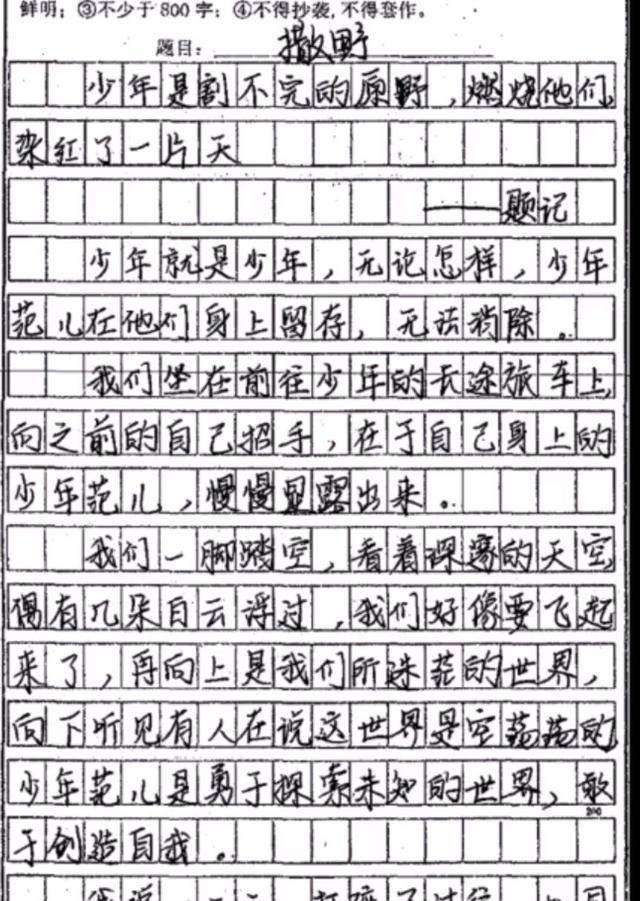 鲜明；③不少于800字；④不得抄袭，不得套作。
题目：撒野
少年是割不完的原野，燃烧他们，
染红了一片天
——题记
少年就是少年，无论怎样，少年
范儿在他们身上留存，无法消除。
我们坐在前往少年的长途旅车上，
向之前的自己招手，在于自己身上的
少年范儿，慢慢显露出来。
我们一脚踏空，看着深邃的天空，
偶有几朵白云浮过，我们好像要飞起
来了，再向上是我们所迷茫的世界，
向下听见有人在说这世界是空荡荡的，
少年范儿是勇于探索未知的世界，敢
200
于创造自我。